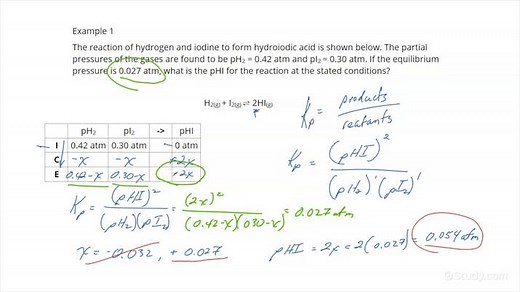 Example 1
The reaction of hydrogen and iodine to form hydroiodic acid is shown below. The partial
pressures of the gases are found to be pH₂ = 0.42 atm and pI₂ = 0.30 atm. If the equilibrium
pressure is 0.027 atm, what is the pHI for the reaction at the stated conditions?
H₂(g) + I₂(g) ⇌ 2HI(g)
Kp = products / reactants
pH₂ pI₂ -> pHI
I 0.42 atm 0.30 atm 0 atm
C -x -x +2x
E 0.42-x 0.30-x +2x
Kp = (pHI)² / (pH₂)¹(pI₂)¹
Kp = (pHI)² / (pH₂)(pI₂) = (2x)² / (0.42-x)(0.30-x) = 0.027 atm
x = -0.032, + 0.027
pHI = 2x = 2(0.027) = 0.054 atm
Study.com